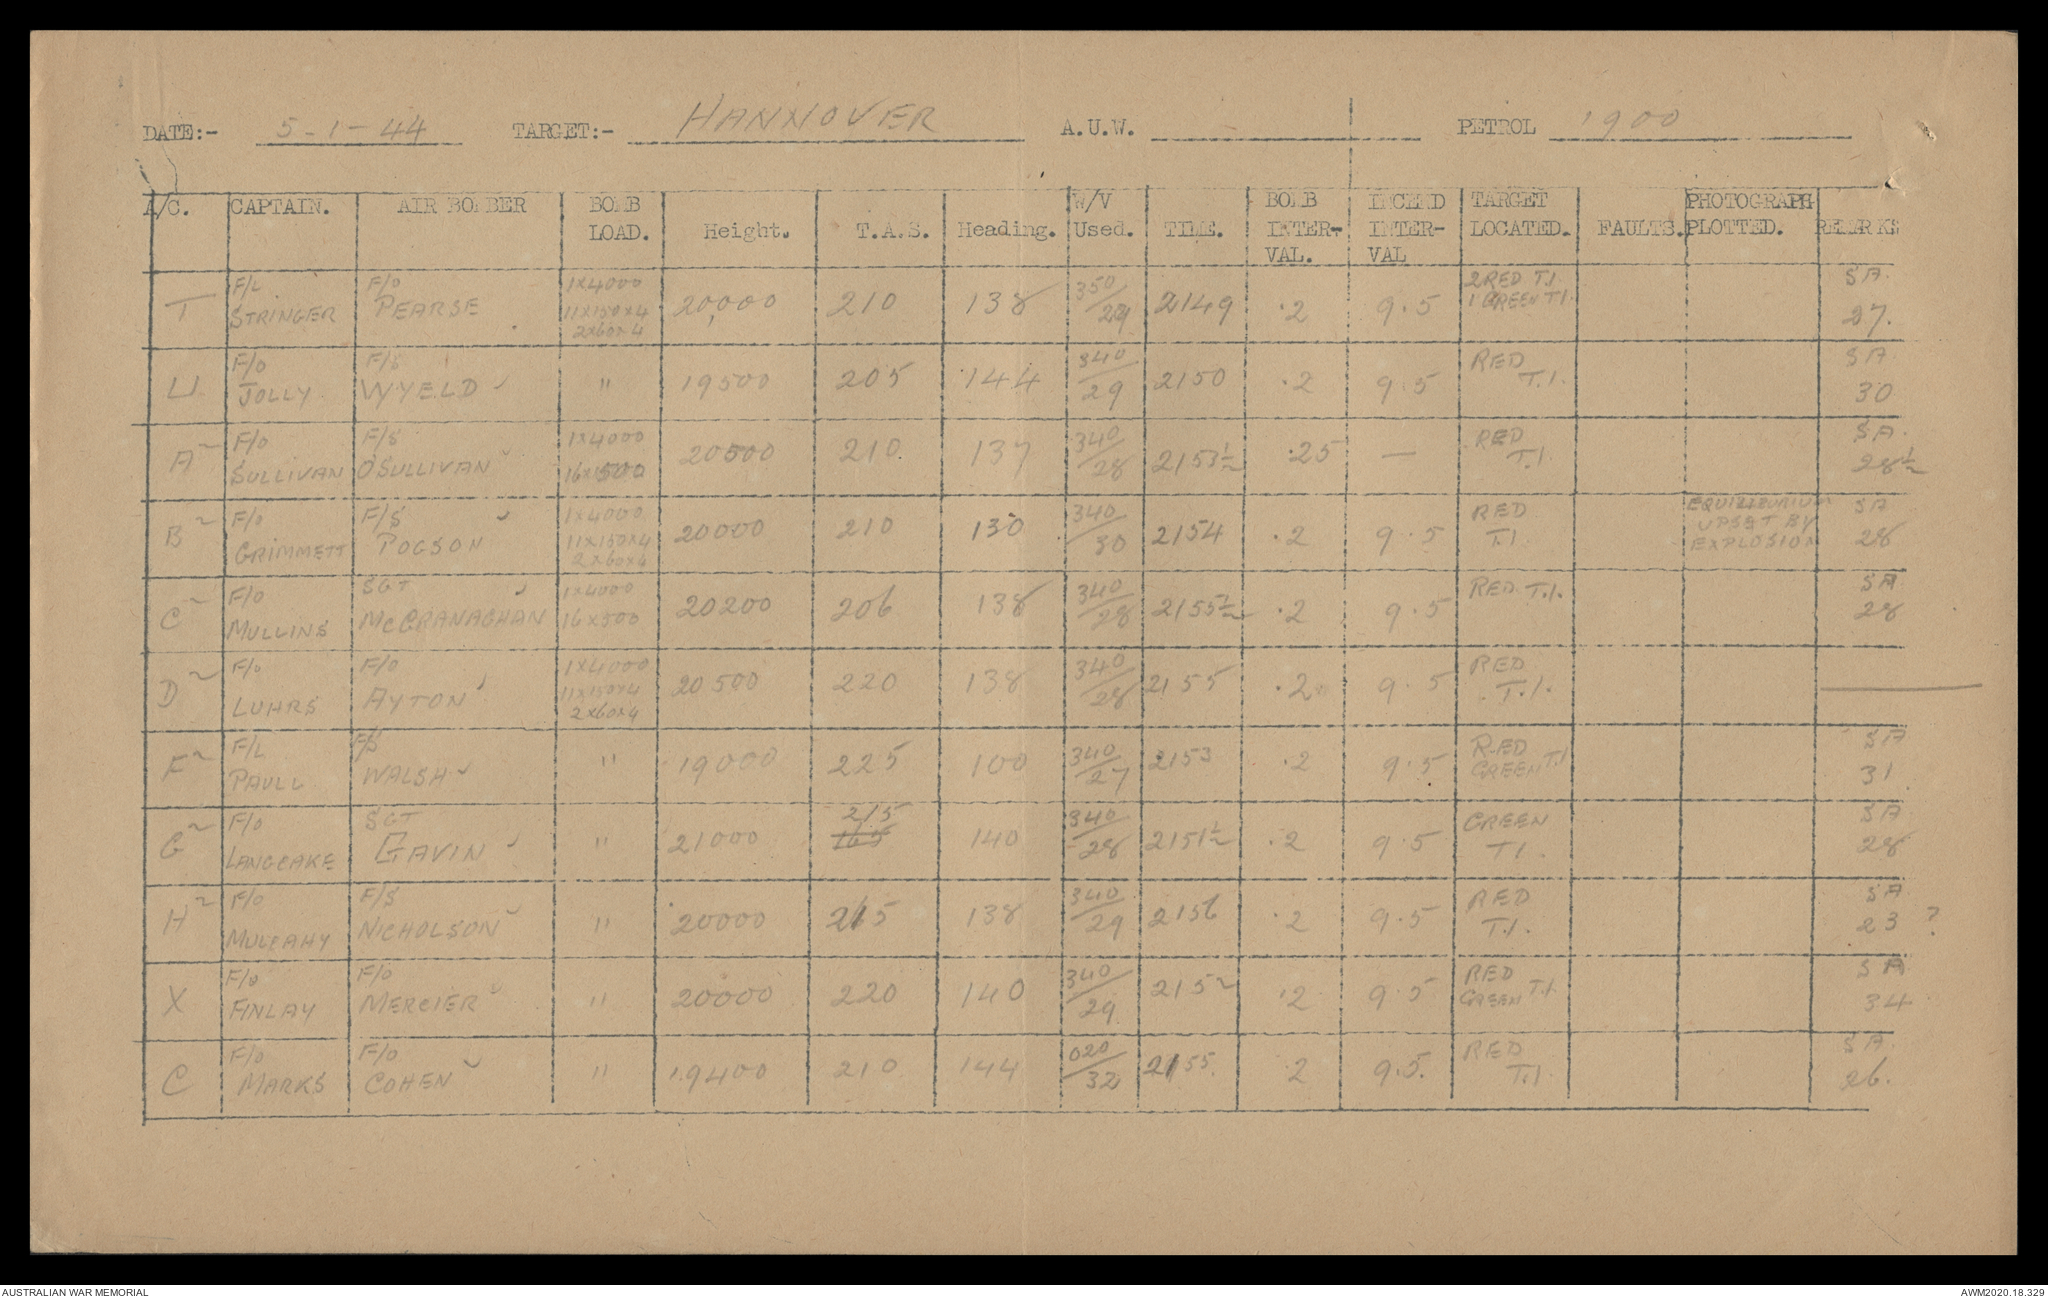 DATE:- 5-1-44 TARGET:- HANNOVER A.U.W. PETROL 1900
A/C. CAPTAIN. AIR BOMBER BOMB LOAD. Height. T.A.S. Heading. W/V Used. TIME. BOMB INTER-VAL. INCEND INTER-VAL TARGET LOCATED. FAULTS. PHOTOGRAPH PLOTTED. REMARKS
T F/L STRINGER F/O PEARSE 1x4000 11x150x4 2x60x4 20,000 210 138 350/29 2149 .2 9.5 2 RED T.I. 1 GREEN T.I. SA. 27.
U F/O JOLLY F/S WYELD " 19500 205 144 340/29 2150 .2 9.5 RED T.I. SA 30
A2 F/O SULLIVAN F/S O'SULLIVAN 1x4000 16x500 20500 210. 137 340/28 2153½ .25 — RED T.I. SA. 28½
B2 F/O GRIMMETT F/S POGSON 1x4000 11x150x4 2x60x4 20000 210 130 340/30 2154 .2 9.5 RED T.I EQUILIBURIUM UPSET BY EXPLOSION SA 28
C2 F/O MULLINS SGT McCRANAGHAN 1x4000 16x500 20200 206 138 340/28 2155½ .2 9.5 RED T.I. SA 28
D2 F/O LUHRS F/O AYTON 1x4000 11x150x4 2x60x4 20500 220 138 340/28 2155 .2 9.5 RED T.I. —
F2 F/L PAULL F/S WALSH " 19000 225 100 340/27 2153 .2 9.5 RED GREEN T.I SA 31
G2 F/O LANGCAKE SGT GAVIN " 21000 215 165 140 340/28 2151½ .2 9.5 GREEN T.I. SA 28
H2 F/O MULCAHY F/S NICHOLSON " 20000 215 138 340/29 2156 .2 9.5 RED T.I. SA 23 ?
X F/O FINLAY F/O MERCIER " 20000 220 140 340/29 2152 .2 9.5 RED GREEN T.I. SA 34
C F/O MARKS F/O COHEN " 19400 210 144 020/32 2155. .2 9.5. RED T.I SA. 26.
AUSTRALIAN WAR MEMORIAL
AWM2020.18.329